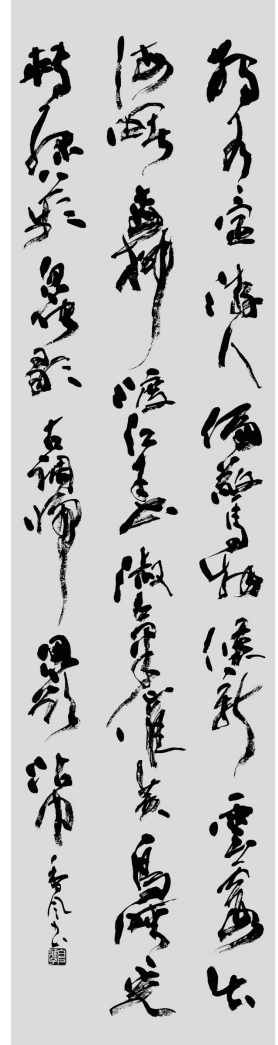 獨有宦遊人偏驚物候新雲霞出
海曙梅柳渡江春淑氣催黃鳥晴光
轉綠蘋忽聞歌古調歸思欲沾巾